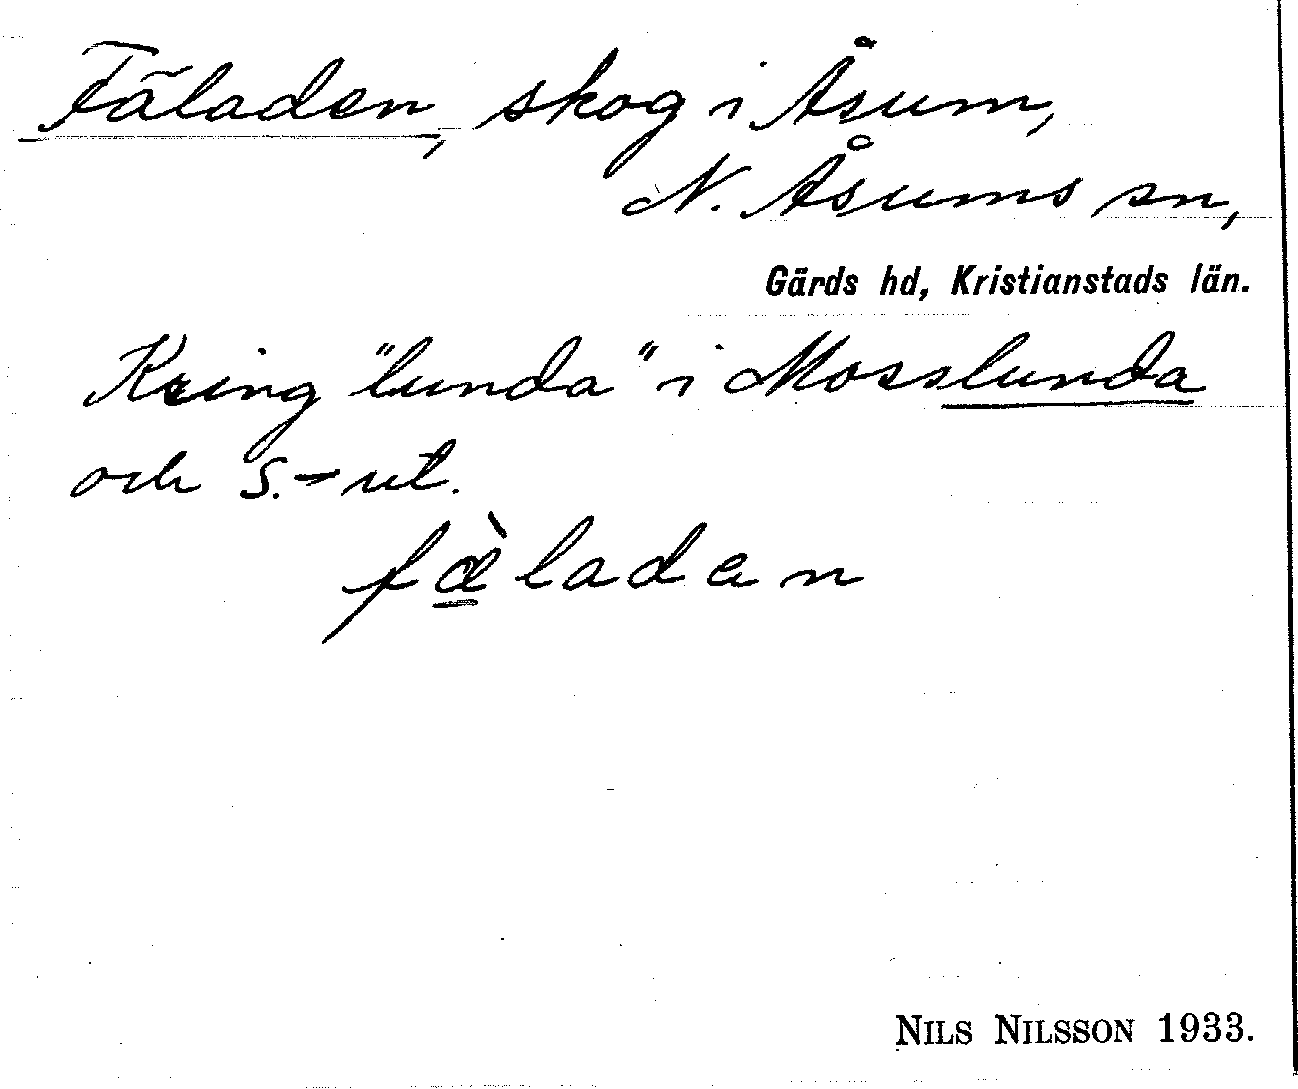 Fäladen, skog i Åsum,
N. Åsums sn,
Gärds hd, Kristianstads län.
Kring "lunda" i Mosslunda
och s.-ut.
fæ̀laden
NILS NILSSON 1933.